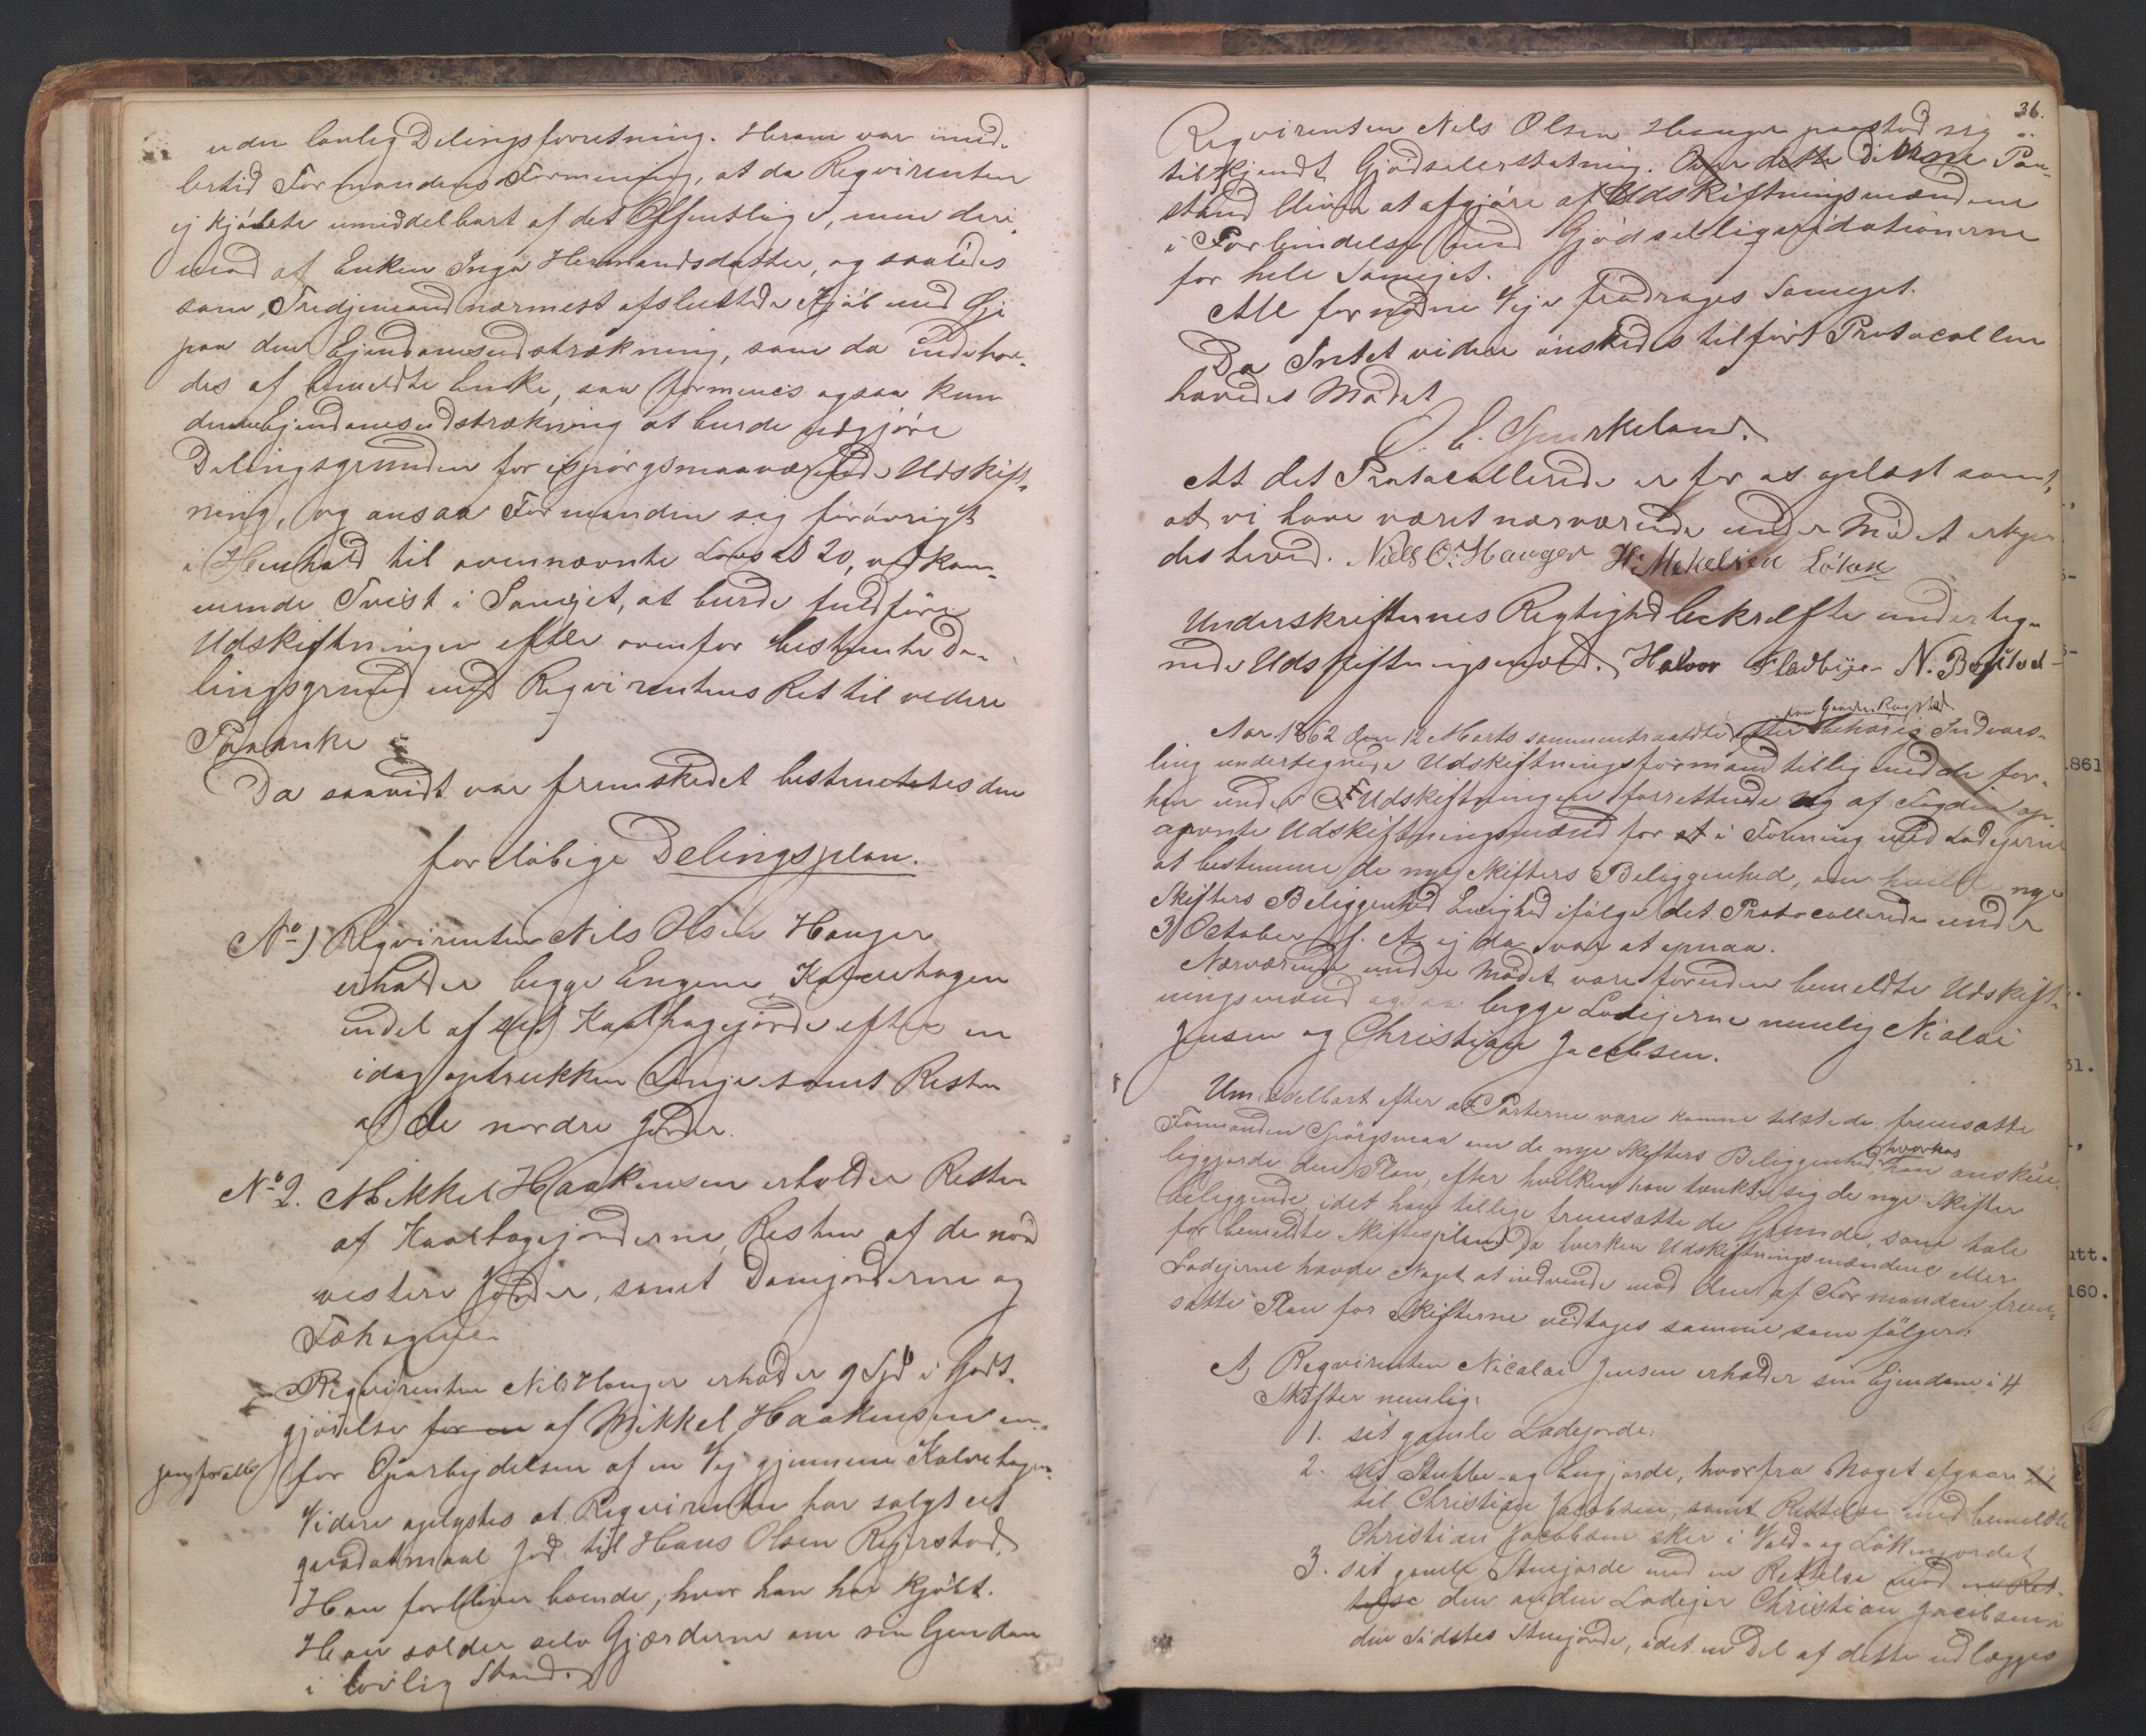 uden lovlig Delingsforretning. Herom var imid-
lertid Formandens Formening, at da Reqvirenten
ej kjøbte umiddelbart af det Offentlige, men deri-
mod af Enken Inga Hermandsdatter, og saaledes
som Tredjemand nærmest afsluttede Kjøb med Gje
paa den Ejendomsudstrækning, som da indehav-
des af bemeldte Enke, saa formenes ogsaa kun
denne Ejendomsudstrækning at burde udgjøre
Delingsgrunden for ispørgsmaaværende Udskift-
ning, og ansaa Formanden sig forøvrigt
i Henhold til ovennævnte Lovs § 20, vedkom-
mende Tvist i Sameiet, at burde fuldføre
Udskiftningen efter ovenfor bestemte De-
lingsgrund med Reqvirentens Ret til videre
Paaanke
Da saavidt var fremskedet bestemtes den
foreløbige Delingsplan.
No 1) Reqvirenten Nils Olsen Hauger
erholder begge Engene, Kalvehagen
endel af sit Kaalhagejorde efter en
idag optrukken Linje samt Resten
af de nordre Jorder.
No 2. Mikkel Haakensen erholder Resten
af Kaalhagejorderne, Resten af de nord
vestere Jorder, samt Damjorderne og
Fæhagene.
Reqvirenten Nils Hauger erholder 9 Spd i Godt-
gjørelse for en af Mikkel Haakensen en-
gang for alle for Oparbejdelsen af en Vej gjennem Kalvehagen.
Videre oplystes at Reqvirenten har solgt et
qvadatmaal Jord til Hans Olsen Rejerstad.
Han forbliver boende, hvor han har kjøbt.
Han holder selv Gjærderne om sin Eiendom
i lovlig Stand.
36.
Reqvirenten Nils Olsen Hauger paastod sig
tilkjendt Gjødselerstatning. Over dette Denne Paa-
stand bliver at afgjøre af Udskiftningsmændene
i Forbindelse med Gjødselliqvidationerne
for hele Sameiet.
Alle fornødne Veje fradrages Sameiet.
Da Intet videre ønskedes tilført Protocollen
hævedes Mødet
At det Protocollerede er for os oplæst samt,
at vi have været nærværende under Mødet erkjen-
des herved. Niels O: Hauger H: Mekelsen Løken
Underskrifternes Rigtighed bekræfte underteg-
nede Udskiftningsmænd. Halvor Fladbye N. Bogstad
paa Gaarden Rogstad
Aar 1862 den 12 Marts sammentraadte efter behørig Indvars-
ling undertegnede Udskiftningsformand tilligemed de for-
hen under Udskiftningen forrettende og af Fogden op-
nævnte Udskiftningsmænd for at i Forening med Lodejerne
at bestemme de nye Skifters Beliggenhed, om hvilke nye
Skifters Beliggenhed Enighed ifølge det Protocollerede under
31 October f. A. ej da var at opnaa.
Nærværende under Mødet vare foruden bemeldte Udskift-
ningsmænd ogsaa begge Lodejerne nemlig Nicolai
Jensen og Christian Jacobsen.
Umiddelbart efter at Parterne vare komne tilstede, fremsatte
Formanden Spørgsmaal om de nye Skifters Beliggenhed, hvorhos han anskue-
liggjorde den Plan, efter hvilken han tænkte sig de nye Skifter
beliggende, idet han tillige fremsatte de Grunde, som tale
for bemeldte Skiftesplan. Da hverken Udskiftningsmændene eller
Lodejerne havde Noget at indvende mod den af Formanden frem-
satte Plan for Skifterne vedtages samme som følger:
A, Reqvirenten Nicolai Jensen erholder sin Ejendom i 4
Skifter nemlig:
1. sit gamle Ladejorde.
2. sit Stubbe- og Engjorde, hvorfra Noget afgaar til
til Christian Jacobsen, samt Rettelse med bemeldte
Christian Jacobsen sker i Vold- og Løkenjordet
3. sit gamle Stuejorde med en Rettelse mod en Ret-
telse den anden Lodejer Christian Jacobsen i
den Sidstes Stuejorde, idet en Del af dette udlægges
1861
51.
utt.
160.